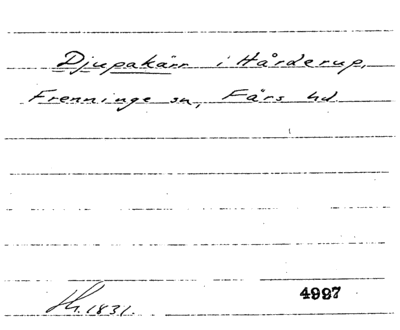 Djupakärr i Hårderup,
Frenninge sn, Färs hd
1831.
4997